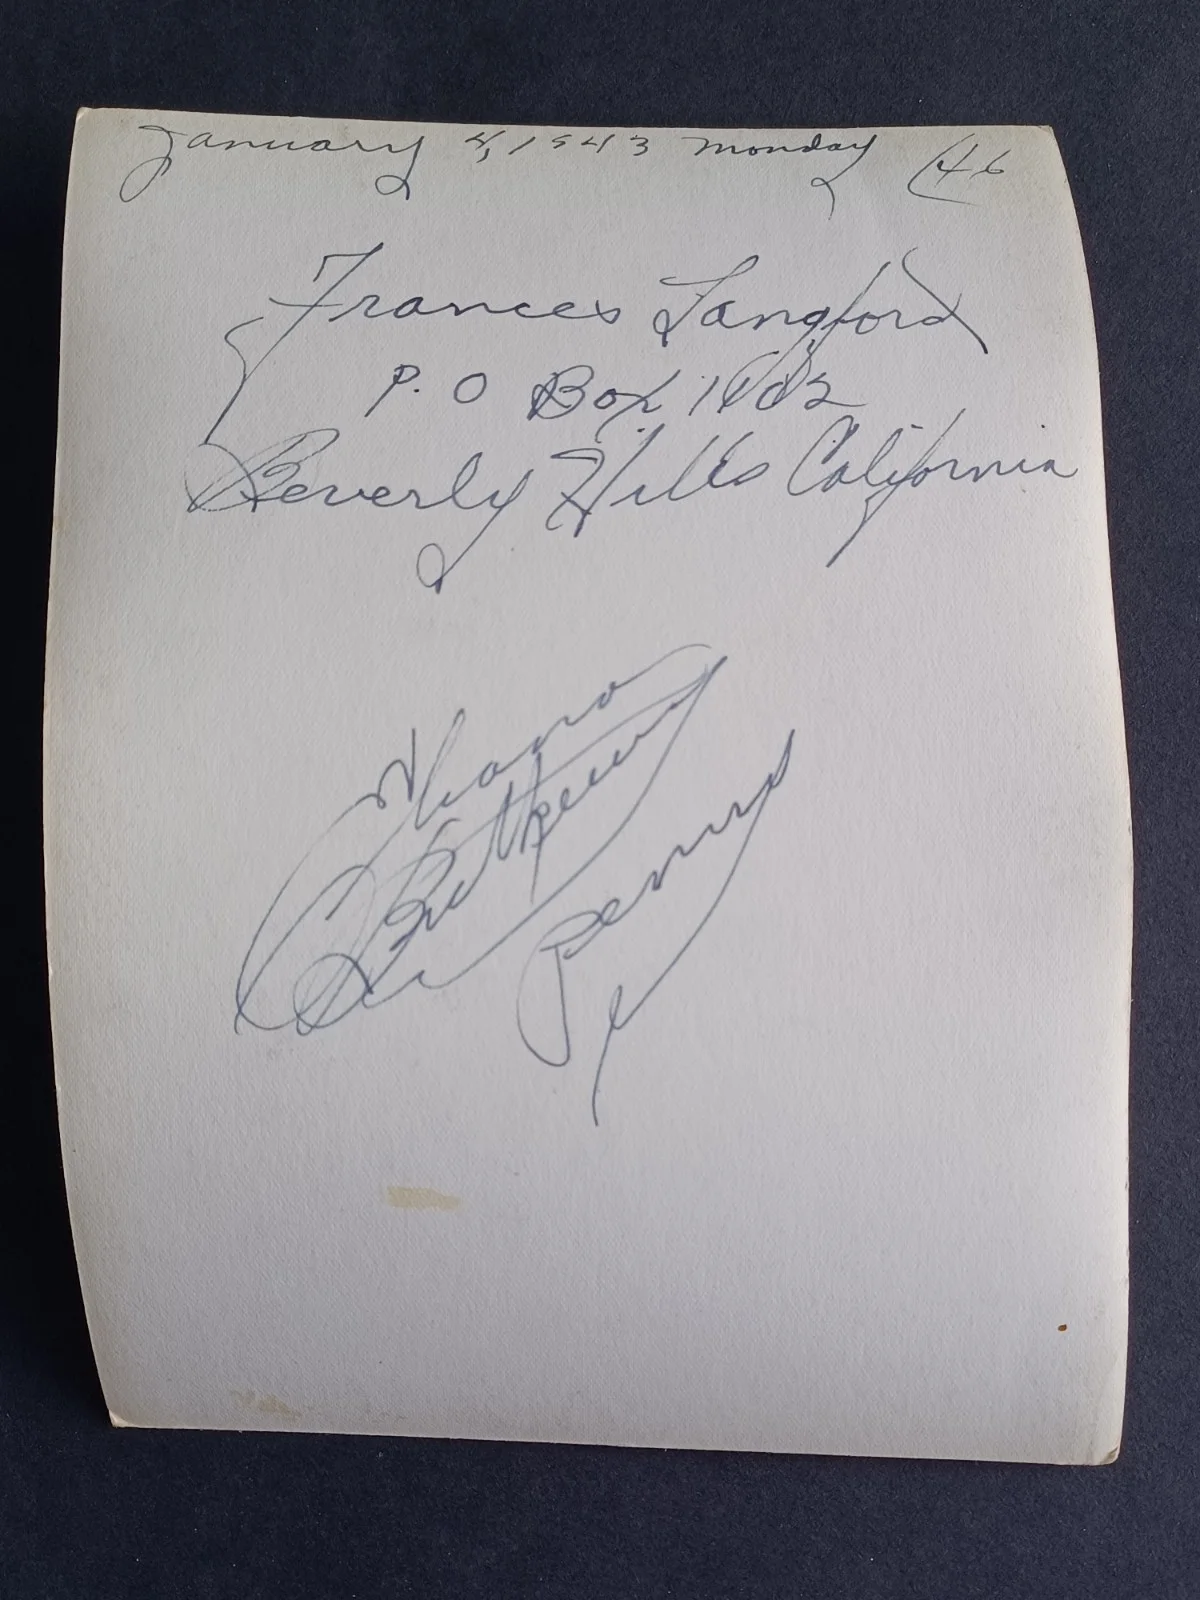 January 4, 1943 Monday (46
Frances Langford
P. O Box
Beverly Hills California
Penny